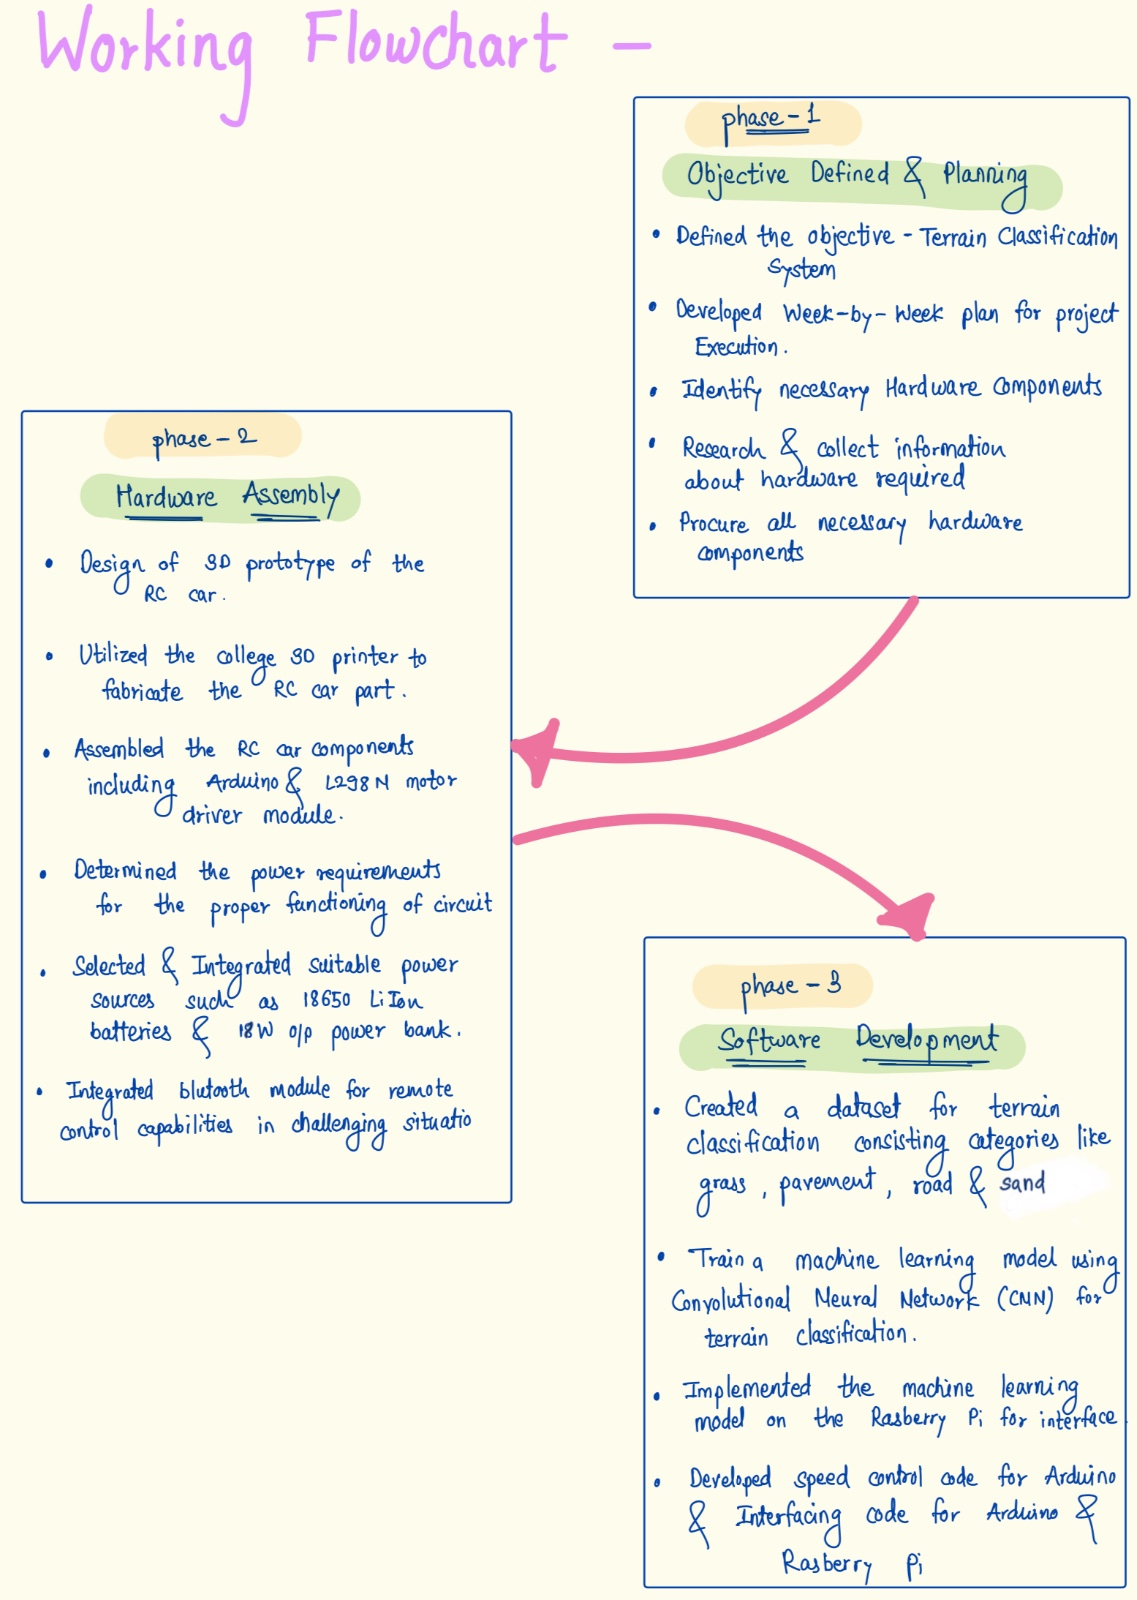 Working Flowchart -
phase-1
Objective Defined & Planning
• Defined the objective - Terrain Classification
System
• Developed Week-by-Week plan for project
Execution.
• Identify necessary Hardware Components
• Research & collect information
about hardware required
• Procure all necessary hardware
components
phase-2
Hardware Assembly
• Design of 3D prototype of the
RC car.
• Utilized the college 3D printer to
fabricate the RC car part.
• Assembled the RC car components
including Arduino & L298N motor
driver module.
• Determined the power requirements
for the proper functioning of circuit
• Selected & Integrated suitable power
sources such as 18650 LiIon
batteries & 18W o/p power bank.
• Integrated blutooth module for remote
control capabilities in challenging situatio
phase-3
Software Development
• Created a dataset for terrain
classification consisting categories like
grass, pavement, road & sand
• Train a machine learning model using
Convolutional Neural Network (CNN) for
terrain classification.
• Implemented the machine learning
model on the Rasberry Pi for interface.
• Developed speed control code for Arduino
& Interfacing code for Arduino &
Rasberry Pi